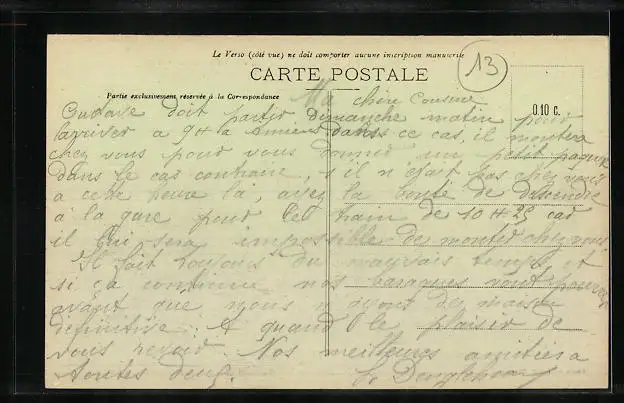 Le Verso (côté vue) ne doit comporter aucune inscription manuscrite
13
CARTE POSTALE
Partie exclusivement réservée à la Correspondance
0.10 c.
Ma chère Cousine
Gustave doit partir dimanche matin pour
arriver a 9H a Amiens dans ce cas, il montera
chez vous pour vous donner un petit paquet
dans le cas contraire, s'il n'était pas chez vous
a cette heure la, ayez la bonté de descendre
à la gare pour le train de 10 H 25 car
il lui sera impossible de monter chez vous
Il fait toujours du mauvais temps, et
si ça continue nos baraques vont pourrir
avant que nous n'ayons des maisons
définitive. A quand le plaisir de
vous revoir. Nos meilleures amitiés a
toutes deux.